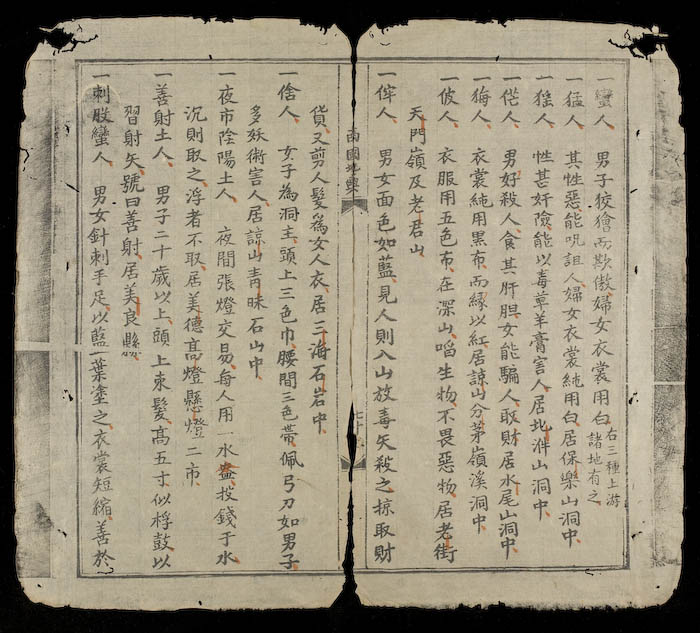 一蠻人 男子狡獪而欺傲婦女衣裳用白 右三種上游
諸地有之
一猛人 其性惡能咒詛人婦女衣裳純用白居保樂山洞中
一猺人 性甚奸險能以毒草羊膏害人居北泮山洞中
一狫人 男好殺人食其肝胆女能騙人取財居水尾山洞中
一𤞦人 衣裳純用黑布而緣以紅居諒山分茅嶺溪洞中
一彼人 衣服用五色布在深山啗生物不畏惡物居老街
天門嶺及老君山
一㑺人 男女面色如藍見人則入山放毒矢殺之掠取財
南國地輿
七十
貨又剪人髮為女人衣居三海石岩中
一倽人 女子為洞主頭上三色巾腰間三色帶佩弓刀如男子
多妖術害人居諒山青昧石山中
一夜市陰陽土人 夜間張燈交易每人用一水盎投錢于水
沉則取之浮者不取居美德高燈懸燈二市
一善射土人 男子二十歲以上頭上束髮高五寸似桴鼓以
習射矢號曰善射居美良縣
一刺股蠻人 男女針刺手足以藍葉塗之衣裳短縮善於